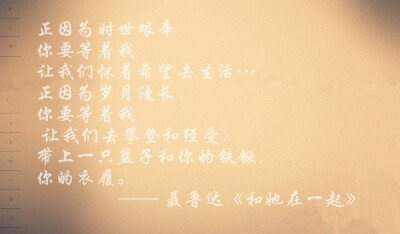 正因为时世艰辛
你要等着我
让我们怀着希望去生活…
正因为岁月漫长,
你要等着我
让我们去攀登和经受;
带上一只篮子和你的铁锹,
你的衣履。
—— 聂鲁达《和她在一起》